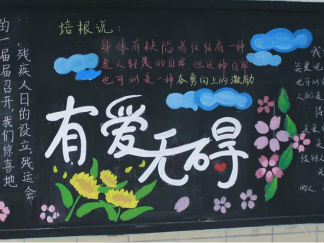 培根说：
身体有缺陷者往往有一种
遭人轻蔑的自卑，但这种自卑
也可以是一种奋勇向上的激励
有爱无碍
残疾人日的设立，残运会
的一届届召开，我们惊喜地